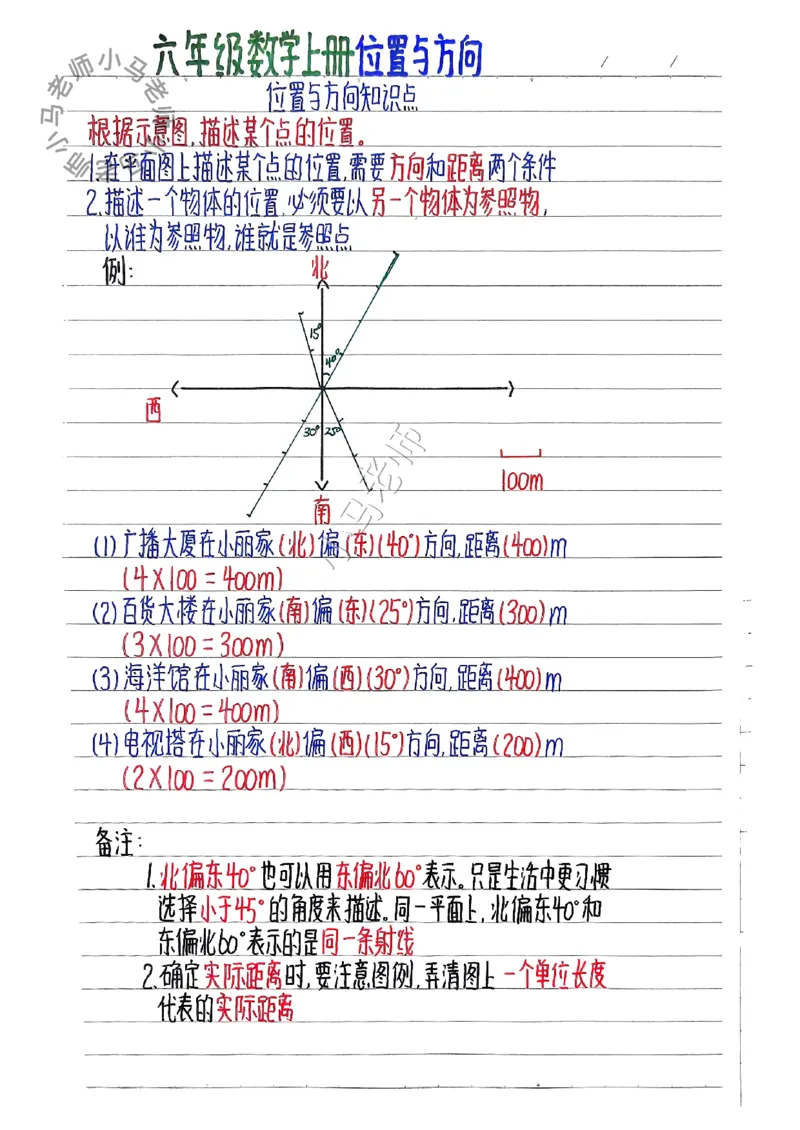 六年级数学上册位置与方向
位置与方向知识点
根据示意图,描述某个点的位置。
1.在平面图上描述某个点的位置,需要方向和距离两个条件
2.描述一个物体的位置,必须要以另一个物体为参照物,
以谁为参照物,谁就是参照点
例:
北
15°
40°
西
30° 25°
100m
南
(1)广播大厦在小丽家(北)偏(东)(40°)方向,距离(400)m
(4×100=400m)
(2)百货大楼在小丽家(南)偏(东)(25°)方向,距离(300)m
(3×100=300m)
(3)海洋馆在小丽家(南)偏(西)(30°)方向,距离(400)m
(4×100=400m)
(4)电视塔在小丽家(北)偏(西)(15°)方向,距离(200)m
(2×100=200m)
备注:
1.北偏东40°也可以用东偏北60°表示。只是生活中更习惯
选择小于45°的角度来描述。同一平面上,北偏东40°和
东偏北60°表示的是同一条射线
2.确定实际距离时,要注意图例,弄清图上一个单位长度
代表的实际距离
小马老师小马老师
小马老师